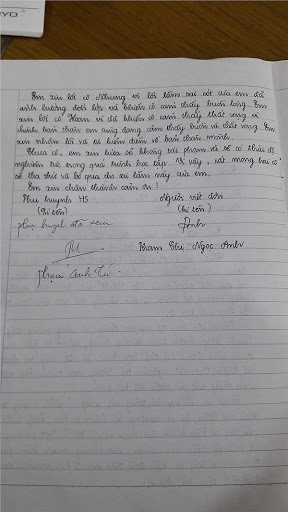 Em xin lỗi cô Nhung vì lỗi lầm sai sót của em đã
ảnh hưởng đến lớp và khiến cô cảm thấy buồn lòng. Em
xin lỗi cô Hoan vì đã khiến cô cảm thấy thất vọng vì
chính bản thân em cũng đang cảm thấy buồn và thất vọng. Em
xin nhận lỗi và tự kiểm điểm về bản thân mình.
Thưa cô, em xin hứa sẽ không tái phạm và sẽ có thái độ
nghiêm túc trong quá trình học tập. Vì vậy, rất mong hai cô
sẽ tha thứ và bỏ qua cho sai lầm này của em.
Em xin chân thành cảm ơn!
Phụ huynh HS Người viết đơn
(kí tên) (kí tên)
phụ huynh đã xem Anh
Phạm Thị Ngọc Anh
Phạm Anh Tú